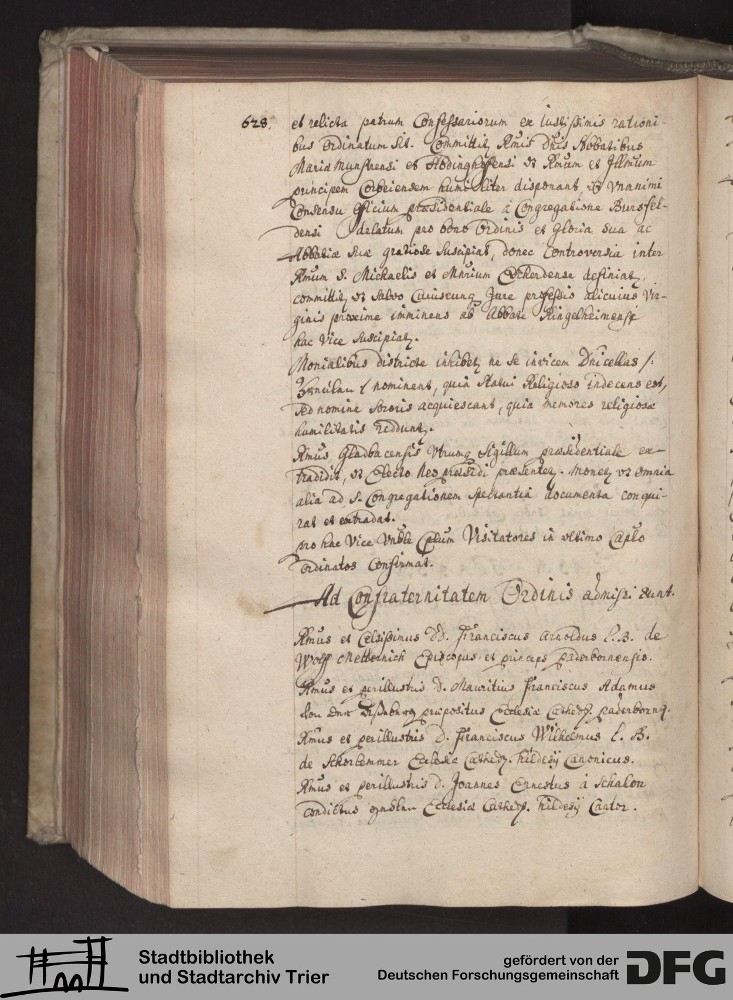 628.
et relicta patrum Confessariorum ex iustissimis rationi-
bus ordinatum sit. Committit Rmis Dnis Abbatibus
Mariæ Munstrensi et Abdinghofensi ut Rmum et Illmum
principem Corbeiensem humiliter disponant, ut unanimi
Consensu officium præsidentiale à Congregatione Bursfel-
densi delatum pro bono ordinis et gloria sua ac
Abbatiæ suæ gratiose suscipiat, donec controversia inter
Rmum S. Michaelis et definiat,
committit, ut salvo cuiuscunq Jure professio alicuius vir-
ginis proxime imminens ab Abbate Ringelheimense
hac vice suscipiat.
Monialibus districte inhibet ne se invicem Dnicellas /:
nominent, quia statui Religioso indecens est,
sed nomine sororis acquiescant, quia memores religiosæ
humilitatis reddunt.
Rmus Gladbacensis utrumq Sigillum præsidentiale ex-
tradidit, ut Electo Neo præsidi præsentet. Monet, ut omnia
alia ad S. Congregationem spectantia documenta conqui-
rat et extradat.
pro hac vice Vnble Cplum Visitatores in ultimo Caplo
ordinatos confirmat.
Ad Confraternitatem Ordinis admissi sunt.
Rmus et Celsissimus DD. Franciscus Arnoldus L. B. de
Wolff Metternich Episcopus et princeps paderbornensis.
Rmus et perillustris D. Mauritius Franciscus Adamus
præpositus Ecclesiæ Cathedr. paderborng.
Rmus et perillustris D. Franciscus Wilhelmus L. B.
de Schorlemmer Ecclesiæ Cathedr. Hildesij Canonicus.
Rmus et perillustris D. Joannes Ernestus à Schalon
condictus Ecclesiæ Cathedr. Hildesij Cantor.
Stadtbibliothek
und Stadtarchiv Trier
gefördert von der
Deutschen Forschungsgemeinschaft
DFG